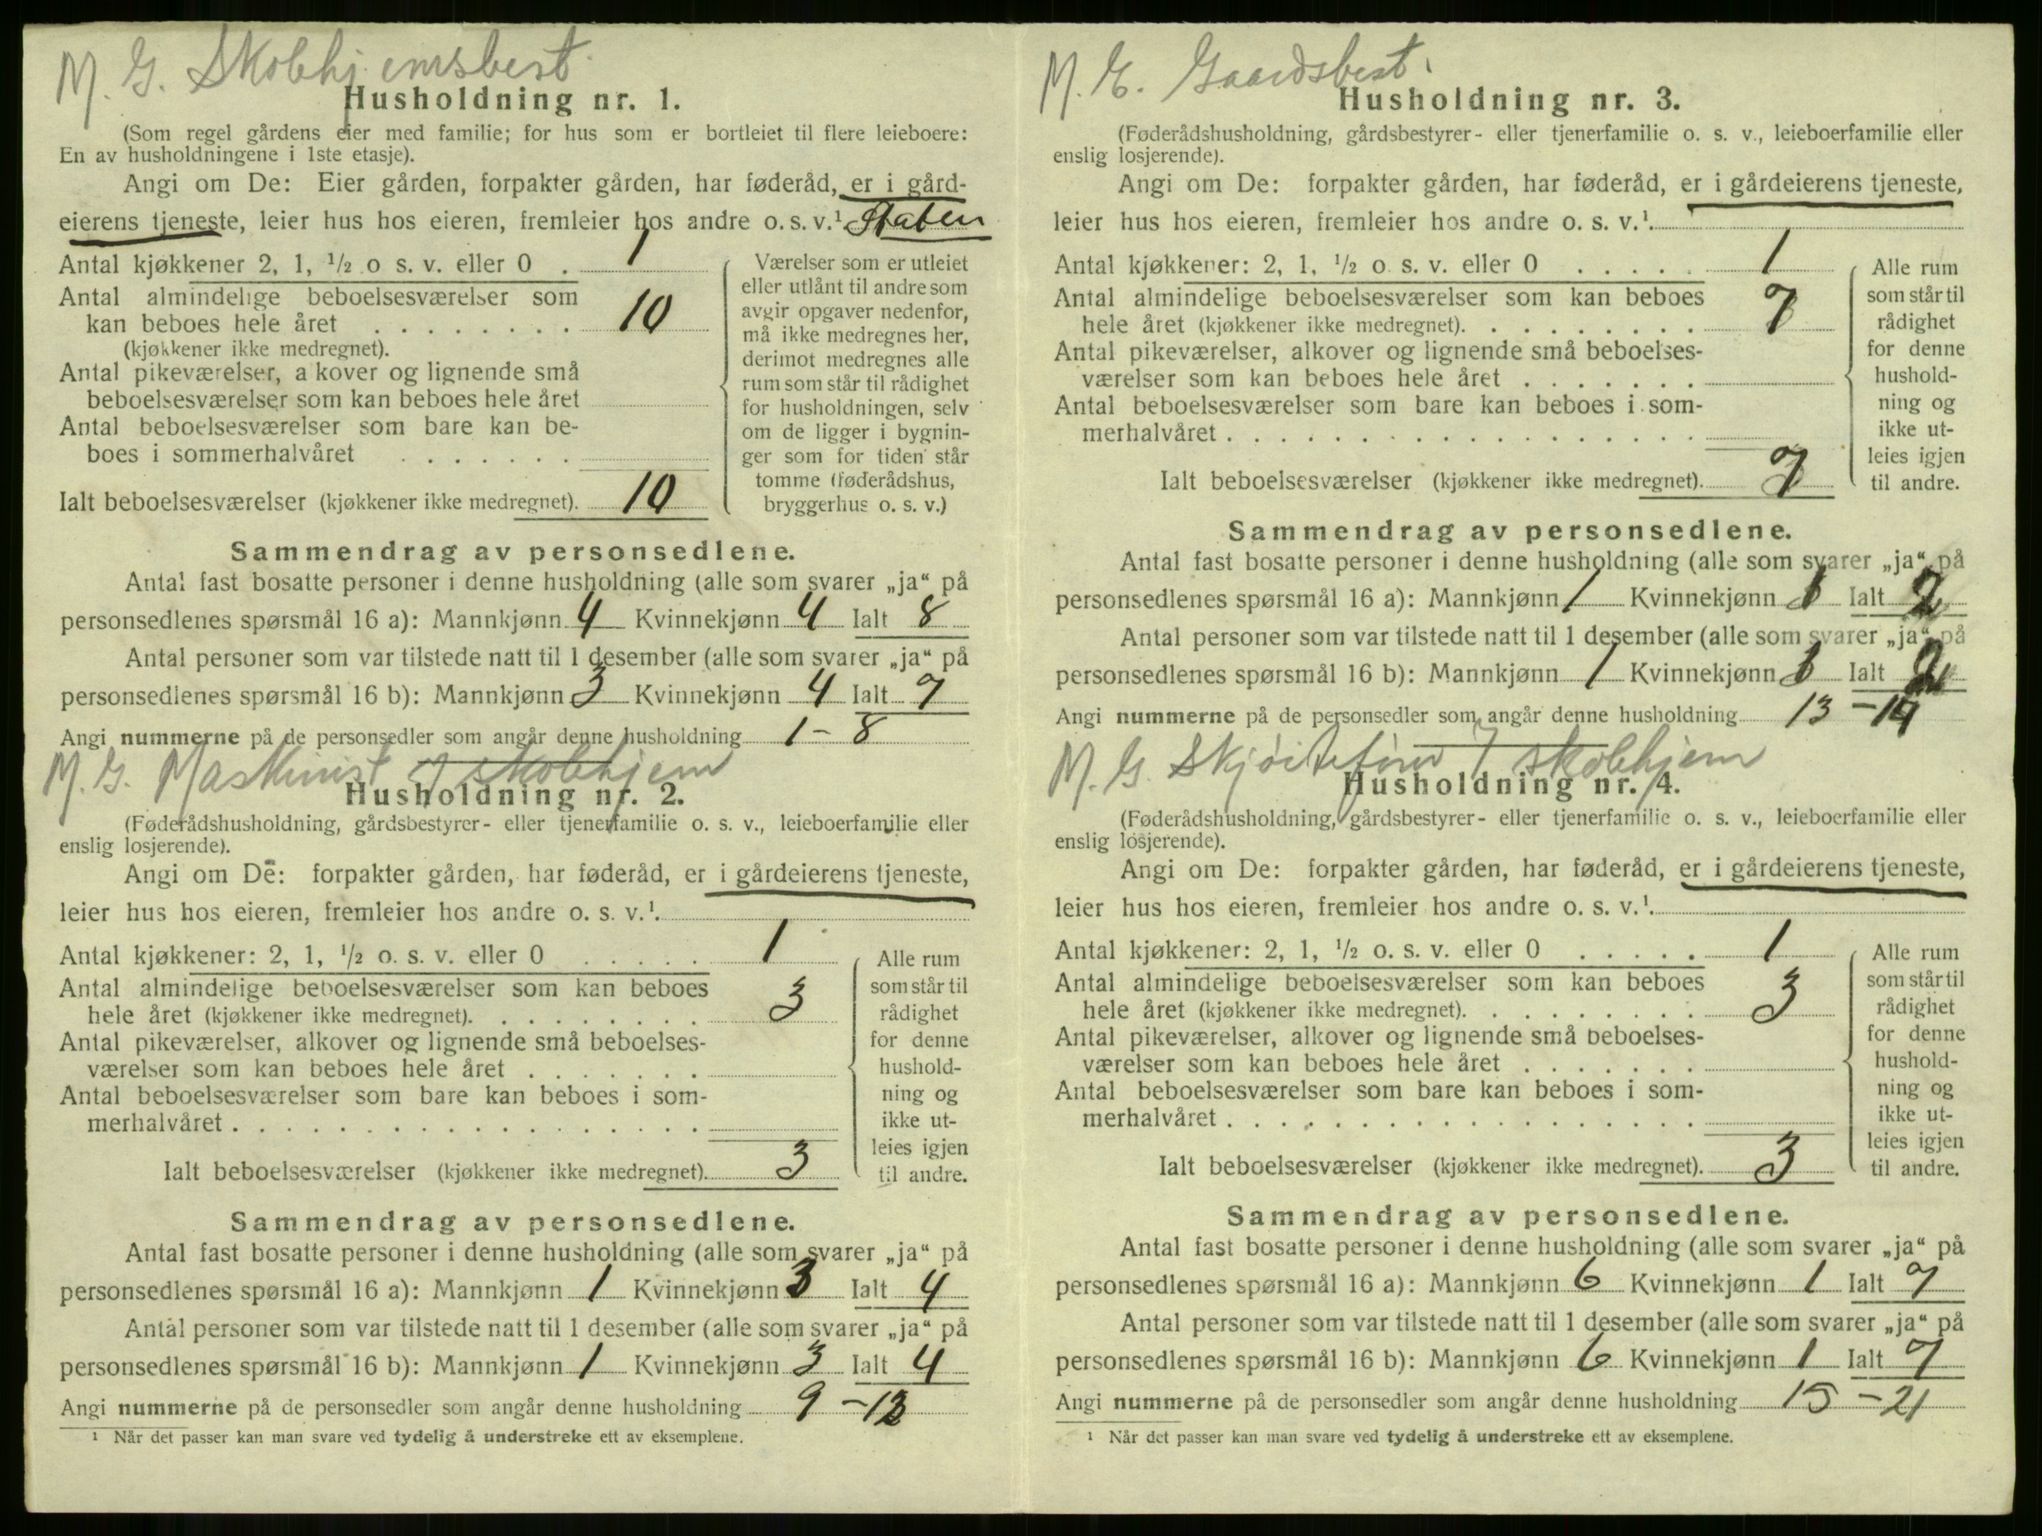 M. G. Skolehjemsbest.
Husholdning nr. 1.
(Som regel gårdens eier med familie; for hus som er bortleiet til flere leieboere:
En av husholdningene i 1ste etasje).
Angi om De: Eier gården, forpakter gården, har føderåd, er i gård-
eierens tjeneste, leier hus hos eieren, fremleier hos andre o. s. v.¹ Staten
Antal kjøkkener 2, 1, ½ o s. v. eller 0 . 1
Antal almindelige beboelsesværelser som
kan beboes hele året . . . . . . . . 10
(kjøkkener ikke medregnet).
Antal pikeværelser, a kover og lignende små
beboelsesværelser som kan beboes hele året
Antal beboelsesværelser som bare kan be-
boes i sommerhalvåret . . . . . . .
Ialt beboelsesværelser (kjøkkener ikke medregnet). 10
Værelser som er utleiet
eller utlånt til andre som
avgir opgaver nedenfor,
må ikke medregnes her,
derimot medregnes alle
rum som står til rådighet
for husholdningen, selv
om de ligger i bygnin-
ger som for tiden står
tomme (føderådshus,
bryggerhus o. s. v.)
Sammendrag av personsedlene.
Antal fast bosatte personer i denne husholdning (alle som svarer „ja“ på
personsedlenes spørsmål 16 a): Mannkjønn 4 Kvinnekjønn 4 Ialt 8
Antal personer som var tilstede natt til 1 desember (alle som svarer „ja“ på
personsedlenes spørsmål 16 b): Mannkjønn 3 Kvinnekjønn 4 Ialt 7
Angi nummerne på de personsedler som angår denne husholdning 1 - 8
M. G. Maskinist skolehjem
Husholdning nr. 2.
(Føderådshusholdning, gårdsbestyrer- eller tjenerfamilie o. s. v., leieboerfamilie eller
enslig losjerende).
Angi om De: forpakter gården, har føderåd, er i gårdeierens tjeneste,
leier hus hos eieren, fremleier hos andre o. s. v.¹.
Antal kjøkkener: 2, 1, ½ o. s. v. eller 0 . . . . . 1
Antal almindelige beboelsesværelser som kan beboes
hele året (kjøkkener ikke medregnet). . . . . . . . . 3
Antal pikeværelser, alkover og lignende små beboelses-
værelser som kan beboes hele året . . . . . . .
Antal beboelsesværelser som bare kan beboes i som-
merhalvåret . . . . . . . . . . . . . . . . . .
Ialt beboelsesværelser (kjøkkener ikke medregnet). 3
Alle rum
som står til
rådighet
for denne
hushold-
ning og
ikke ut-
leies igjen
til andre.
Sammendrag av personsedlene.
Antal fast bosatte personer i denne husholdning (alle som svarer „ja“ på
personsedlenes spørsmål 16 a): Mannkjønn 1 Kvinnekjønn 3 Ialt 4
Antal personer som var tilstede natt til 1 desember (alle som svarer „ja“ på
personsedlenes spørsmål 16 b): Mannkjønn 1 Kvinnekjønn 3 Ialt 4
Angi nummerne på de personsedler som angår denne husholdning 9 - 12
¹ Når det passer kan man svare ved tydelig å understreke ett av eksemplene.
M. G. Gaardsbest.
Husholdning nr. 3.
(Føderådshusholdning, gårdsbestyrer- eller tjenerfamilie o. s. v., leieboerfamilie eller
enslig losjerende).
Angi om De: forpakter gården, har føderåd, er i gårdeierens tjeneste,
leier hus hos eieren, fremleier hos andre o. s. v.¹.
Antal kjøkkener: 2, 1, ½ o. s. v. eller 0 . . . . . 1
Antal almindelige beboelsesværelser som kan beboes
hele året (kjøkkener ikke medregnet). . . . . . . . . 7
Antal pikeværelser, alkover og lignende små beboelses-
værelser som kan beboes hele året . . . . . . .
Antal beboelsesværelser som bare kan beboes i som-
merhalvåret . . . . . . . . . . . . . . . . . .
Ialt beboelsesværelser (kjøkkener ikke medregnet). 7
Alle rum
som står til
rådighet
for denne
hushold-
ning og
ikke ut-
leies igjen
til andre.
Sammendrag av personsedlene.
Antal fast bosatte personer i denne husholdning (alle som svarer „ja“ på
personsedlenes spørsmål 16 a): Mannkjønn 1 Kvinnekjønn 1 Ialt 2
Antal personer som var tilstede natt til 1 desember (alle som svarer „ja“ på
personsedlenes spørsmål 16 b): Mannkjønn 1 Kvinnekjønn 1 Ialt 2
Angi nummerne på de personsedler som angår denne husholdning 13 - 14
M. G. skolehjem
Husholdning nr. 4.
(Føderådshusholdning, gårdsbestyrer- eller tjenerfamilie o. s. v., leieboerfamilie eller
enslig losjerende).
Angi om De: forpakter gården, har føderåd, er i gårdeierens tjeneste,
leier hus hos eieren, fremleier hos andre o. s. v.¹.
Antal kjøkkener: 2, 1, ½ o. s. v. eller 0 . . . . . 1
Antal almindelige beboelsesværelser som kan beboes
hele året (kjøkkener ikke medregnet). . . . . . . . . 3
Antal pikeværelser, alkover og lignende små beboelses-
værelser som kan beboes hele året . . . . . . .
Antal beboelsesværelser som bare kan beboes i som-
merhalvåret . . . . . . . . . . . . . . . . . .
Ialt beboelsesværelser (kjøkkener ikke medregnet). 3
Alle rum
som står til
rådighet
for denne
hushold-
ning og
ikke ut-
leies igjen
til andre.
Sammendrag av personsedlene.
Antal fast bosatte personer i denne husholdning (alle som svarer „ja“ på
personsedlenes spørsmål 16 a): Mannkjønn 6 Kvinnekjønn 1 Ialt 7
Antal personer som var tilstede natt til 1 desember (alle som svarer „ja“ på
personsedlenes spørsmål 16 b): Mannkjønn 6 Kvinnekjønn 1 Ialt 7
Angi nummerne på de personsedler som angår denne husholdning 15 - 21
¹ Når det passer kan man svare ved tydelig å understreke ett av eksemplene.